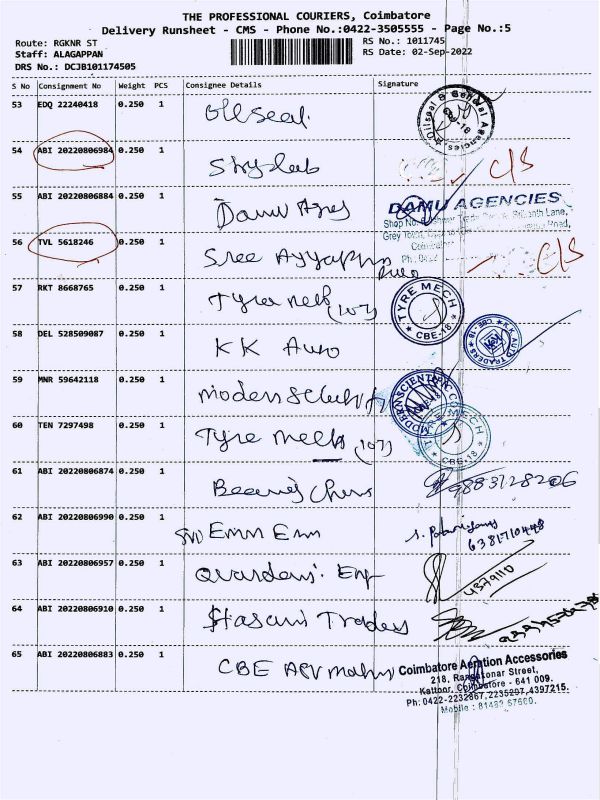 THE PROFESSIONAL COURIERS, Coimbatore
Delivery Runsheet - CMS - Phone No.:0422-3505555 - Page No.:5
Route: RGKNR ST RS No.: 1011745
Staff: ALAGAPPAN RS Date: 02-Sep-2022
DRS No.: DCJB101174505
S No Consignment No Weight PCS Consignee Details Signature
53 EDQ 22240418 0.250 1 Oilseal Oilseal & General Agencies CBE-18
54 ABI 20220806984 0.250 1 C/S
55 ABI 20220806884 0.250 1 Damu Agncy DAMU AGENCIES
Shop No.
Grey Town,
Coimbatore
Ph: 0422
56 TVL 5618246 0.250 1 Sree Ayyappa Auto C/S
57 RKT 8668765 0.250 1 Tyre Mech (107) TYRE MECH CBE-18
58 DEL 528509087 0.250 1 KK Auto K.K. AUTO TRADERS CBE-18
59 MNR 59642118 0.250 1 Modern MODERN SCIENTIFIC
60 TEN 7297498 0.250 1 Tyre Mech (107) TYRE MECH CBE-18
61 ABI 20220806874 0.250 1 9883128206
62 ABI 20220806990 0.250 1 Emm Emm 6381710448
63 ABI 20220806957 0.250 1 4379110
64 ABI 20220806910 0.250 1 Traders
65 ABI 20220806883 0.250 1 CBE Coimbatore Aeration Accessories
218, Street,
Kattoor, Coimbatore - 641 009.
Ph: 0422-2232667, 2235207, 4397215.
Mobile : 81483 57600.